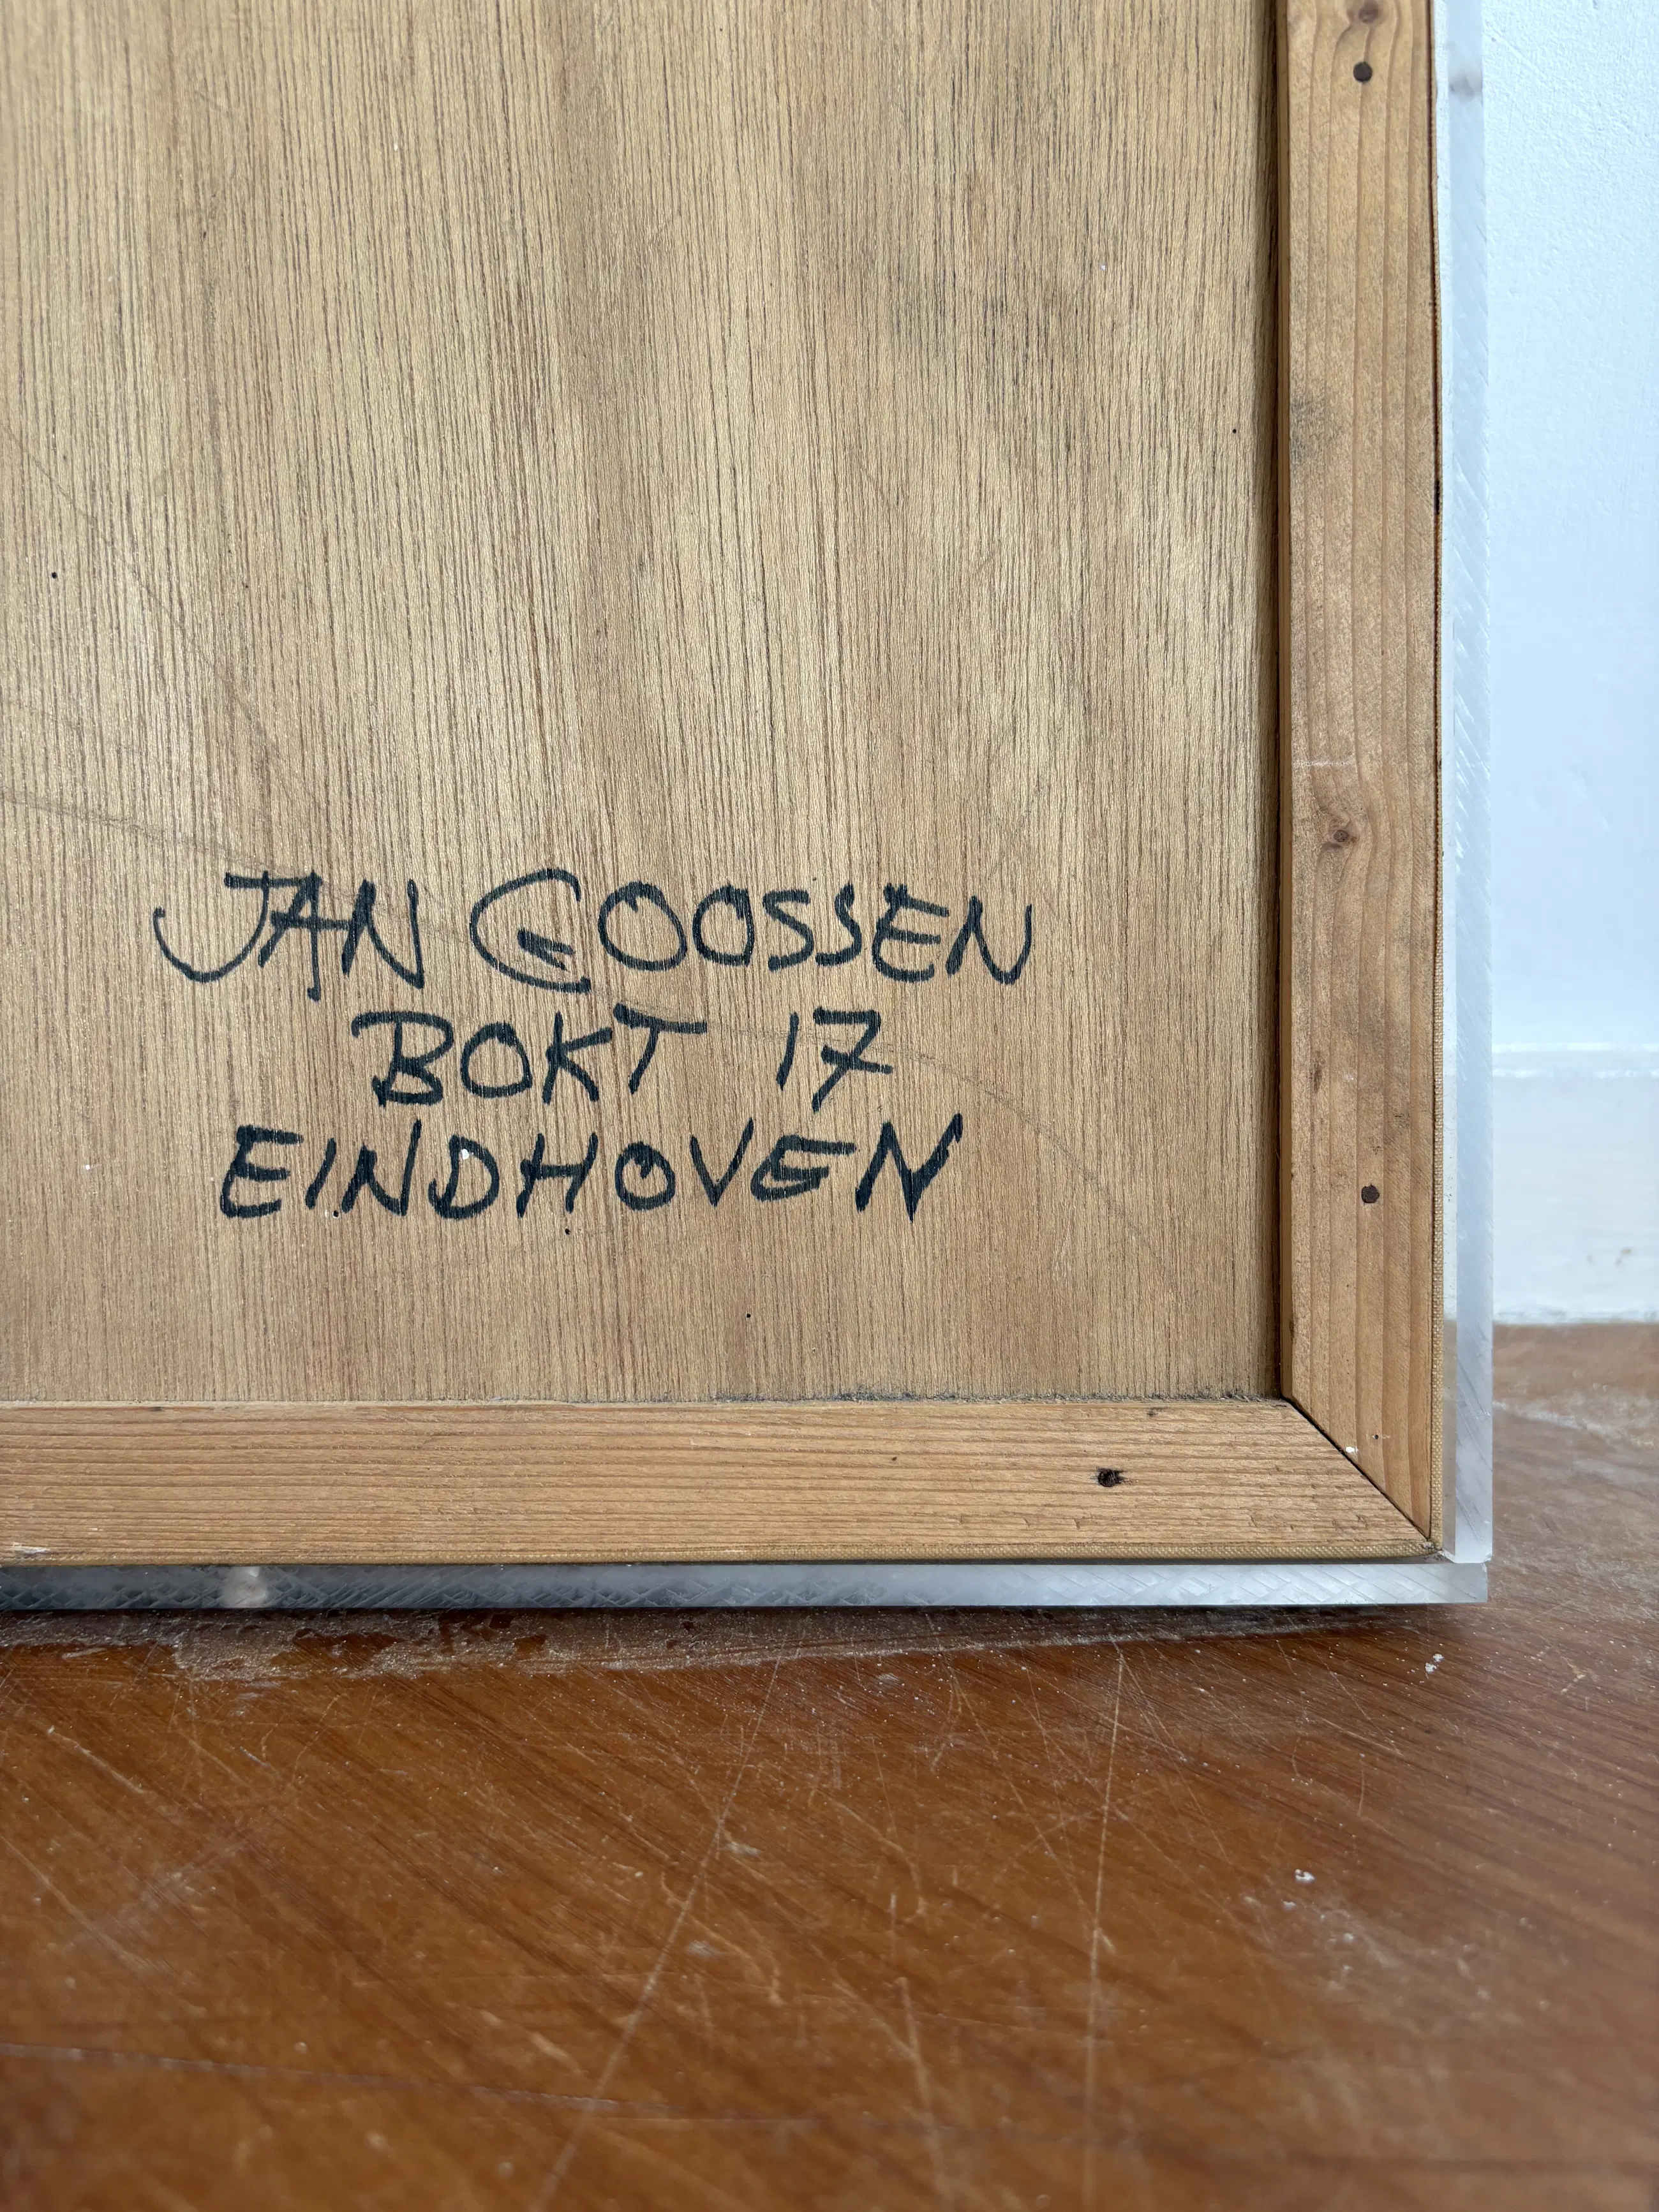 JAN GOOSSEN
BOKT 17
EINDHOVEN